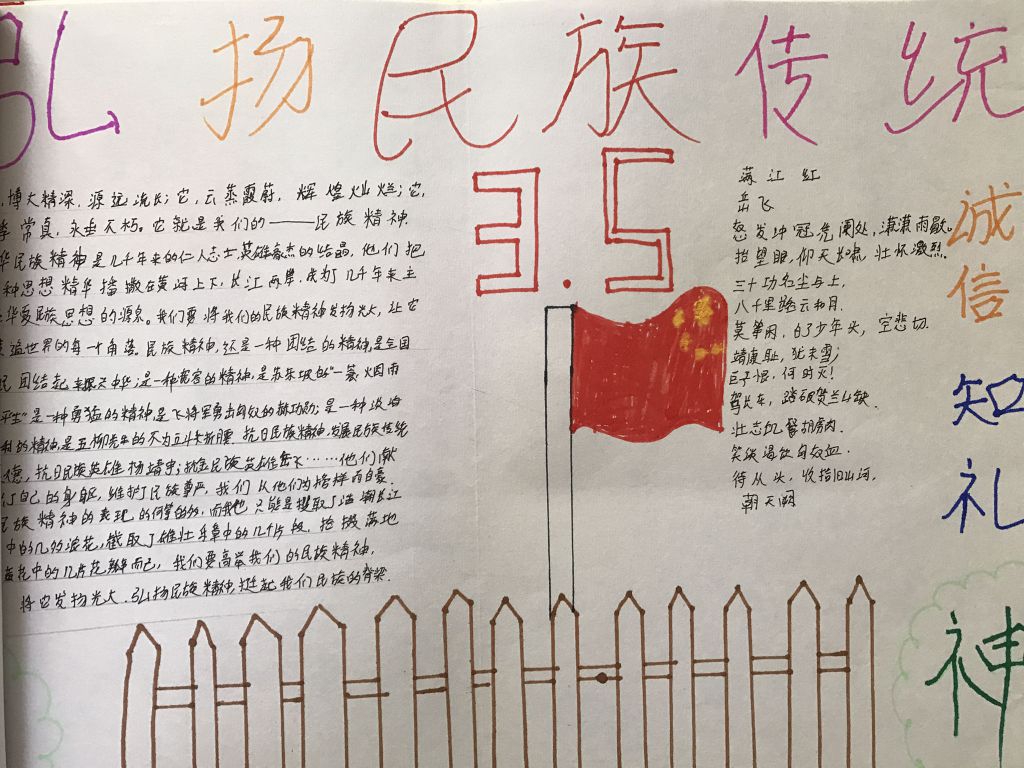 弘扬民族传统
3.5
博大精深,源远流长;它,云蒸霞蔚,辉煌灿烂;它,
常真,永垂不朽。它就是我们的——民族精神.
民族精神是几千年来的仁人志士英雄豪杰的结晶,他们把
种思想精华播撒在黄河上下,长江两岸,成为了几千年来主
华夏民族思想的源泉。我们要将我们的民族精神发扬光大,让它
世界的每一个角落。民族精神,还是一种团结的精神,是全国
民团结起来振兴中华;是一种宽容的精神,是苏东坡的“一蓑烟雨
平生”是一种勇猛的精神是飞将军勇击匈奴的赫赫功勋;是一种淡泊
利的精神,是五柳先生的不为五斗米折腰 抗日民族精神,发展民族传统
德,抗日民族英雄杨靖宇;民族英雄岳飞……他们献
了自己的身躯,维护了民族尊严,我们从他们为榜样而自豪.
民族精神的表现 的何等的多,而我也只能是撷取了滔滔长江
中的几朵浪花,截取了雄壮乐章中的几个片段,拾掇落地
花中的几片花瓣而已,我们要高举我们的民族精神,
将它发扬光大.弘扬民族精神,挺起我们民族的脊梁.
满江红
岳飞
怒发冲冠凭阑处,潇潇雨歇。
抬望眼,仰天长啸 壮怀激烈.
三十功名尘与土,
八千里路云和月.
莫等闲,白了少年头,空悲切.
靖康耻,犹未雪;
臣子恨,何时灭!
驾长车,踏破贺兰山缺.
壮志饥餐胡虏肉.
笑谈渴饮匈奴血.
待从头,收拾旧山河,
朝天阙
诚
信
知
礼
神